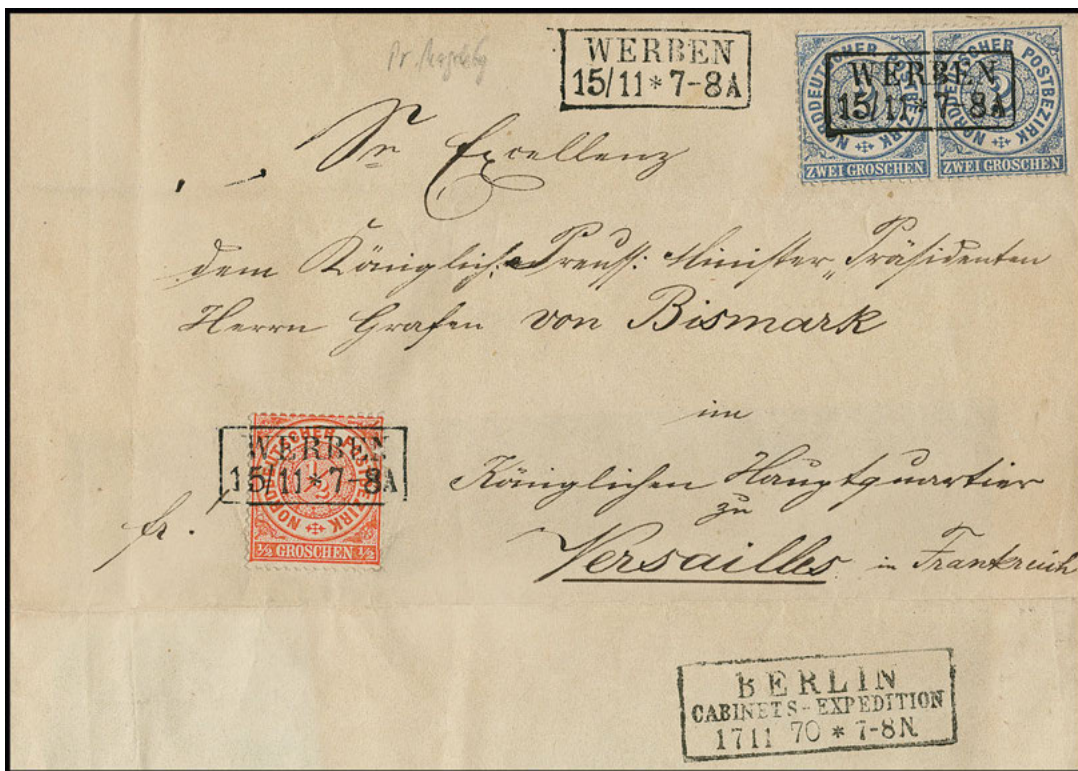 Pr. Magdebg
WERBEN
15/11 * 7-8A
NORDDEUTSCHER POSTBEZIRK
ZWEI GROSCHEN
NORDDEUTSCHER POSTBEZIRK
2
ZWEI GROSCHEN
WERBEN
15/11 * 7-8A
Sr Excellenz
dem Königlich: Preuss: Minister „Präsidenten
Herrn Grafen von Bismark
im
Königlichen Hauptquartier
zu
Versailles in Frankreich
fr.
NORDDEUTSCHER POSTBEZIRK
1/2
1/2 GROSCHEN 1/2
WERBEN
15/11 * 7-8A
BERLIN
CABINETS-EXPEDITION
17 11 70 * 7-8N.